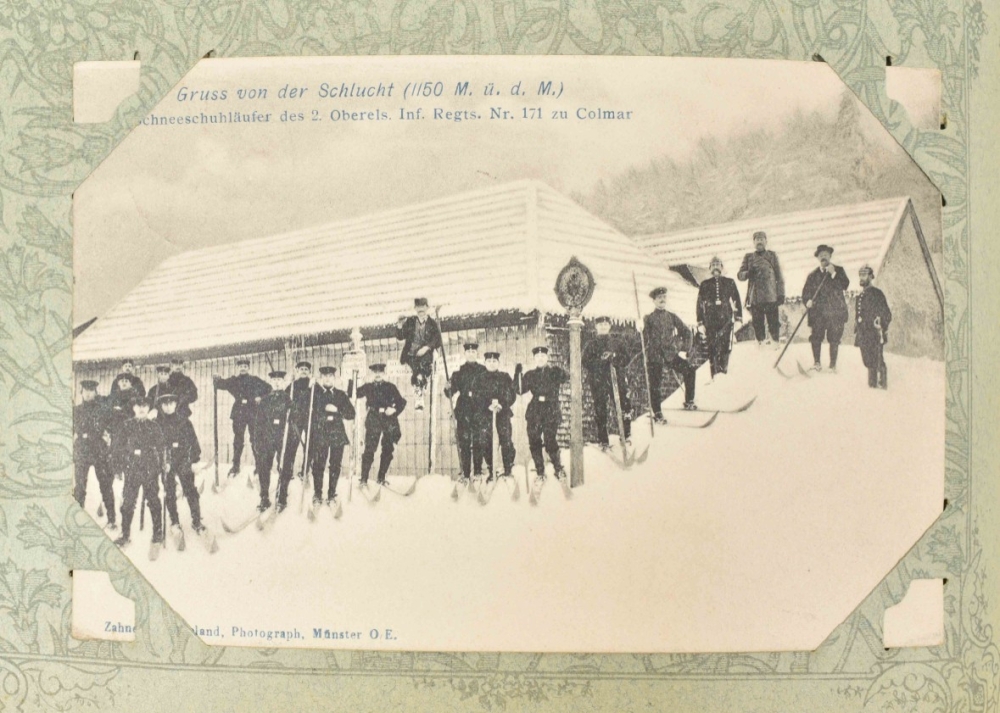 Gruss von der Schlucht (1150 M. ü. d. M.)
chneeschuhläufer des 2. Oberels. Inf. Regts. Nr. 171 zu Colmar
Zahn land, Photograph, Münster O E.